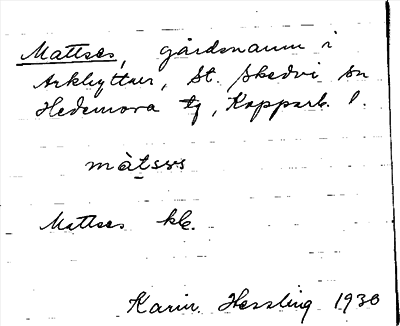 Mattses, gårdsnamn i
Arkhyttan, St. Skedvi sn
Hedemora tg, Kopparb. l.
màtsɛs
Mattses kb.
Karin Hessling 1930